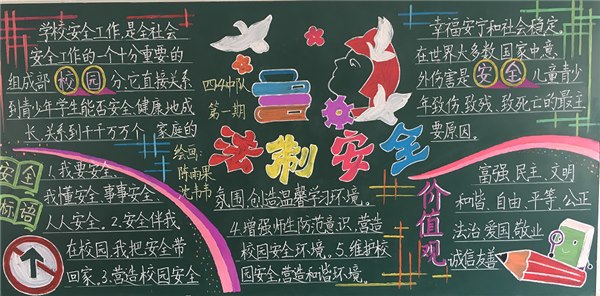 学校安全工作,是全社会
安全工作的一个十分重要的
组成部 校园 分,它直接关系
到青少年学生能否安全、健康地成
长,关系到千千万万个 家庭的
四4中队
第一期
法制安全
绘画:
陈雨果
幸福安宁和社会稳定。
在世界大多数国家中,意
外伤害是 安全 儿童青少
年致伤、致残、致死亡的最主
要原因。
安全
标语
1.我要安全,
我懂安全,事事安全,
人人安全。2.安全伴我
在校园,我把安全带
回家。3.营造校园安全
氛围,创造温馨学习环境。
4.增强师生防范意识,营造
校园安全环境。5.维护校
园安全,营造和谐环境。
价值观
富强、民主、文明
和谐、自由、平等、公正
法治、爱国、敬业
诚信、友善